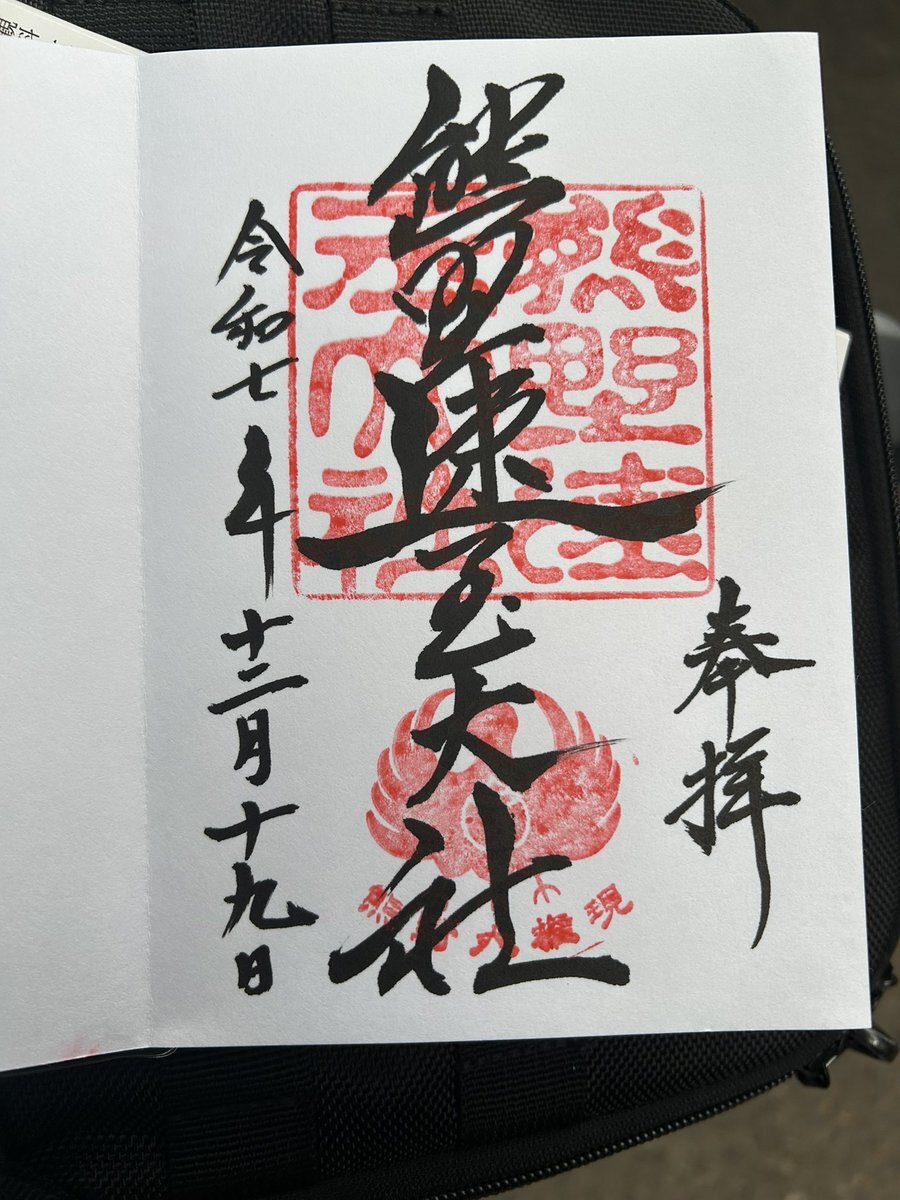 奉拝
熊野速玉大社
令和七年十二月十九日
熊野大権現